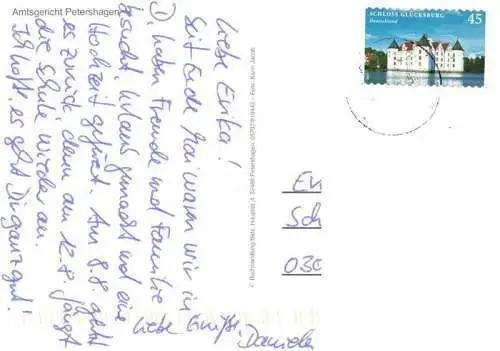 Amtsgericht Petershagen
Liebe Erika!
Seit Ende Mai waren wir in
D, haben Freunde und Familie
besucht, Urlaub gemacht und eine
Hochzeit gefeiert. Am 8.8. geht
es zurück, denn am 12.8. fängt
die Schule wieder an.
Ich hoffe, es geht Dir ganz gut!
Liebe Grüße, Daniela
© Buchhandlung
Petershagen,
Foto: Karin Jacob
SCHLOSS GLÜCKSBURG 45
Deutschland
Er
Sch
030